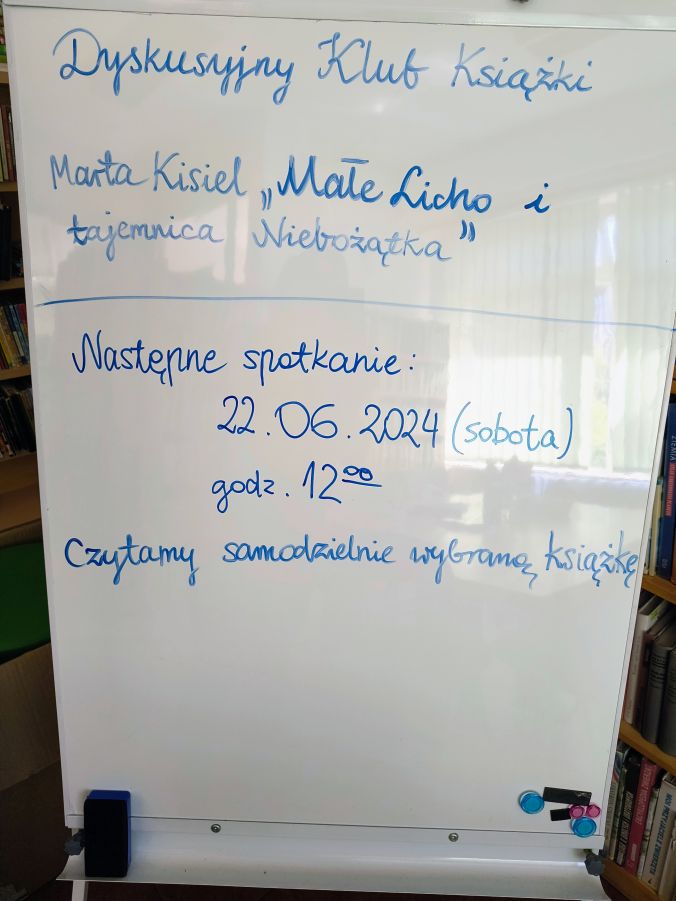 Dyskusyjny Klub Książki
Marta Kisiel „Małe Licho i
tajemnica Niebożątka”
Następne spotkanie:
22.06.2024 (sobota)
godz. 12⁰⁰
Czytamy samodzielnie wybraną książkę